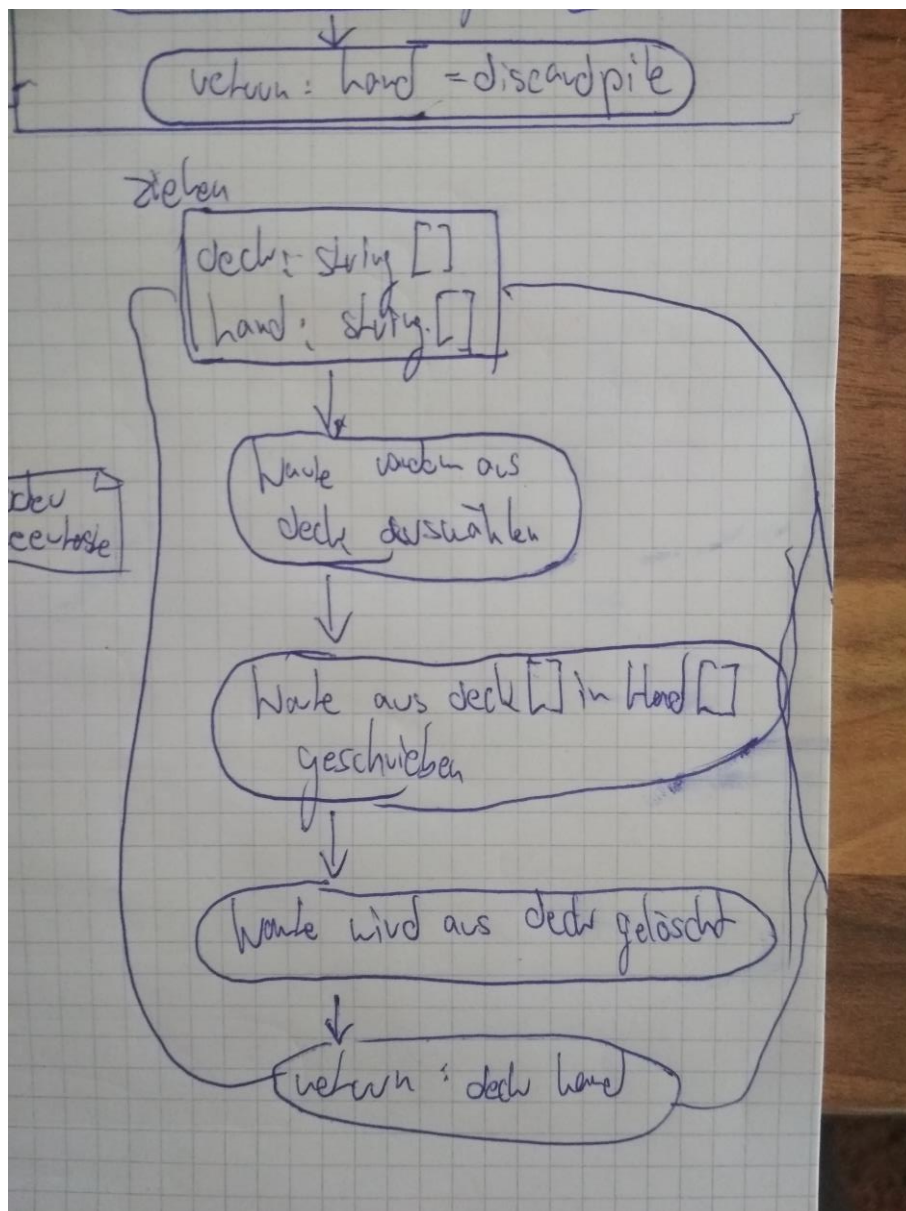 return: hand = discardpile
ziehen
deck: string []
hand: string []
Karte random aus
deck auswählen
Karte aus deck [] in Hand []
geschrieben
Karte wird aus deck gelöscht
return: deck hand